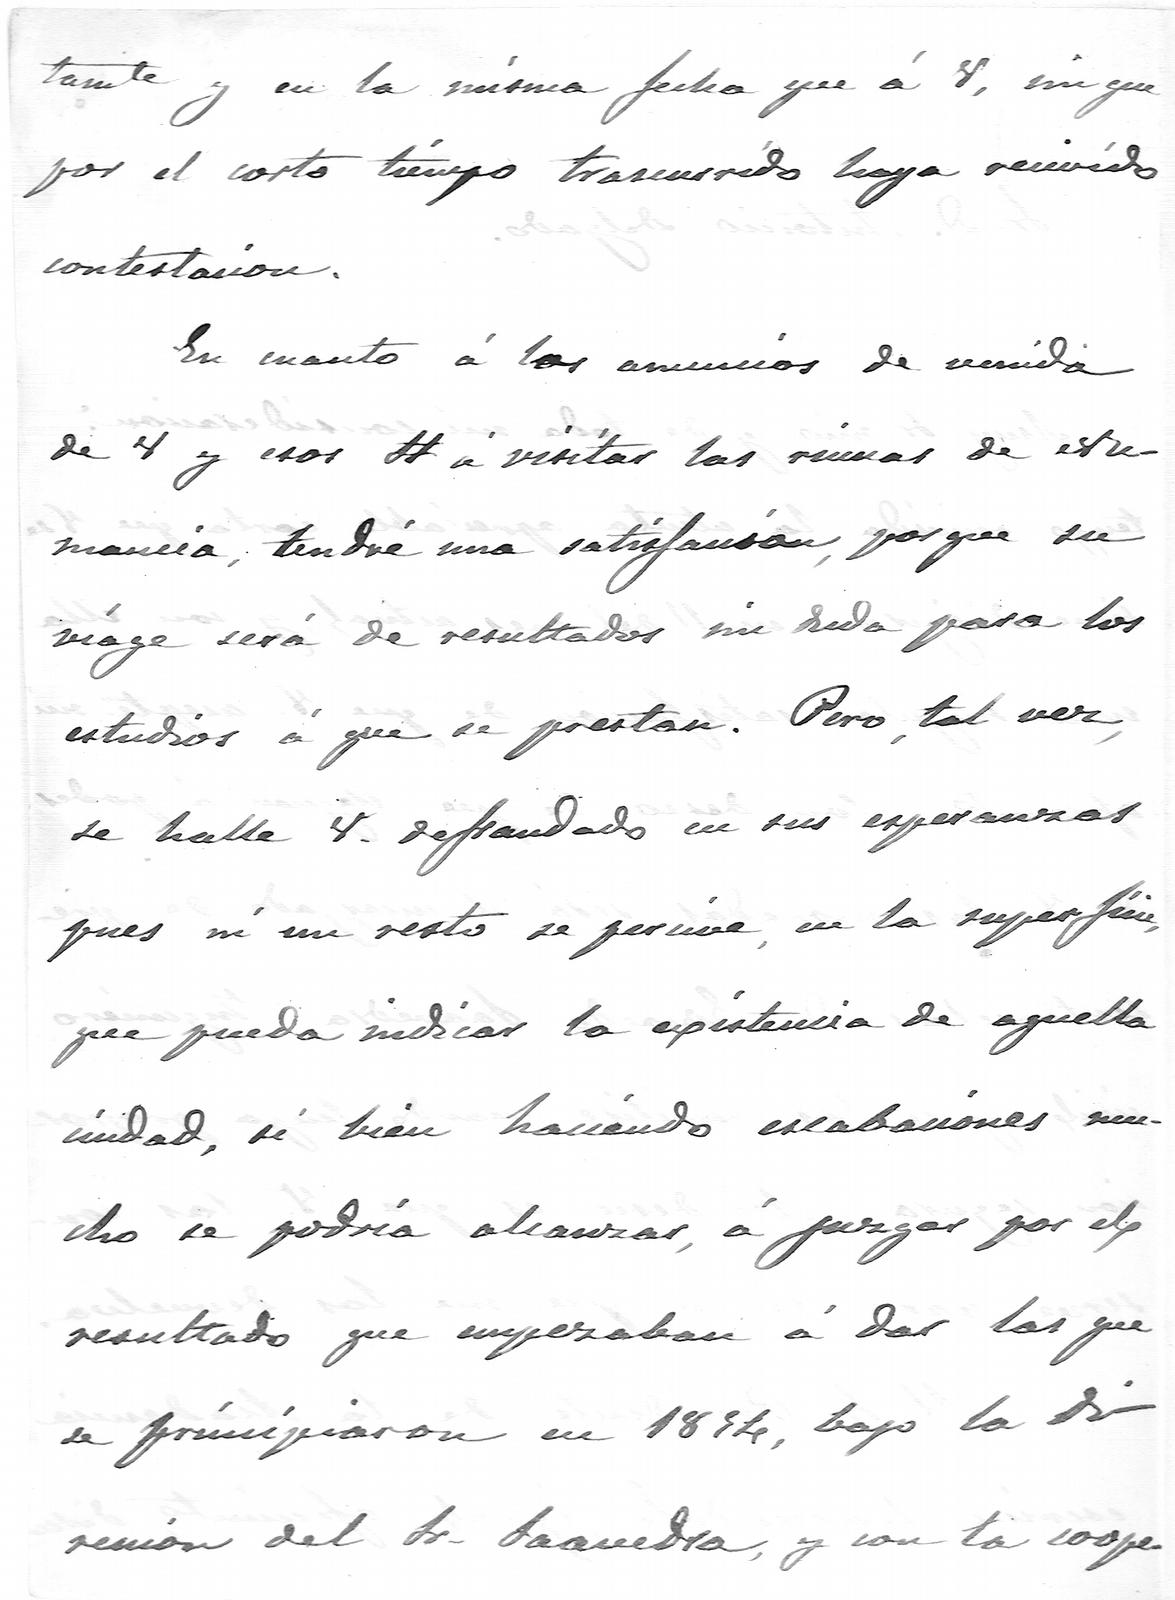 tamte y en la misma fecha que á V, sin que
por el corto tiempo trascurrido haya recivido
contestacion.
En cuanto á los anuncios de venida
de V y esos á visitar las ruinas de
mancia, tendré una satisfacción, porque su
viage será de resultados sin duda para los
estudios á que se prestan. Pero, tal vez,
se halle V. defraudado en sus esperanzas
pues ni un resto se percive, en la superficie,
que pueda indicar la existencia de aquella
ciudad, si bien haciendo escabaciones mu-
cho se podria alcanzar, á juzgar por el
resultado que empezaban á dar las que
se principiaron en bajo la di
reccion del Sr. Saavedra, y con la coope-